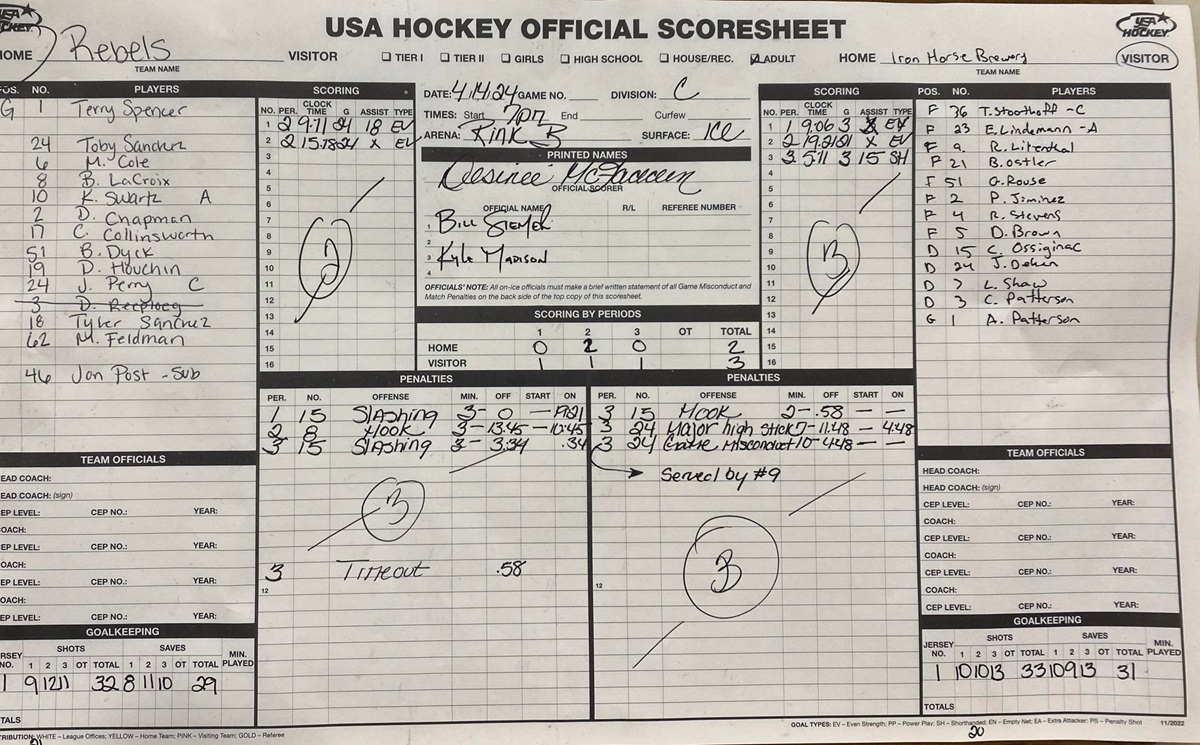 USA HOCKEY OFFICIAL SCORESHEET
USA HOCKEY
HOME Rebels VISITOR
TEAM NAME
☐ TIER I ☐ TIER II ☐ GIRLS ☐ HIGH SCHOOL ☐ HOUSE/REC. ☑ ADULT
HOME Iron Horse Brewery VISITOR
TEAM NAME
POS. NO. PLAYERS
G 1 Terry Spencer
24 Toby Sanchez
6 M. Cole
8 B. LaCroix
10 K. Swartz A
2 D. Chapman
17 C. Collinsworth
51 B. Dyck
19 D. Houchin
24 J. Perry C
3 D.
18 Tyler Sanchez
62 M. Feldman
46 Jon Post - Sub
SCORING
NO. PER. CLOCK TIME G ASSIST TYPE
1 2 9:11 24 18 EV
2 2 15:18 24 X EV
3
4
5
6
7
8
9
10
11
12
13
14
15
16
2
DATE: 4/14/24 GAME NO. DIVISION: C
TIMES: Start 7pm End Curfew
ARENA: Rink B SURFACE: ICE
PRINTED NAMES
Desiree
OFFICIAL SCORER
OFFICIAL NAME R/L REFEREE NUMBER
1 Bill
2
3 Kyle Madison
4
OFFICIALS' NOTE: All on-ice officials must make a brief written statement of all Game Misconduct and
Match Penalties on the back side of the top copy of this scoresheet.
SCORING BY PERIODS
1 2 3 OT TOTAL
HOME 0 2 0 2
VISITOR 1 1 1 3
SCORING
NO. PER. CLOCK TIME G ASSIST TYPE
1 1 9:06 3 X EV
2 2 19:21 21 X EV
3 3 5:11 3 15 SH
4
5
6
7
8
9
10
11
12
13
14
15
16
3
POS. NO. PLAYERS
F 36 T. Stoothoff - C
F 23 E. Lindemann - A
F 9. R. Litenkal
F 21 B. Ostler
F 51 G. Rouse
F 2 P. Jiminez
F 4 R. Stevens
F 5 D. Brown
D 15 C. Ossiginac
D 24 J. Dekin
D 7 L. Shaw
D 3 C. Patterson
G 1 A. Patterson
PENALTIES
PER. NO. OFFENSE MIN. OFF START ON
1 15 Slashing 3- 0 — 19:21
2 8 Hook 3- 13:45 — 10:45
3 15 Slashing 3- 3:34 .34
3
3 Timeout .58
12
PENALTIES
PER. NO. OFFENSE MIN. OFF START ON
3 15 Hook 2- .58 — —
3 24 Major high stick 7- 11:48 — 4:48
3 24 Game Misconduct 10- 4:48 — —
Served by #9
3
12
TEAM OFFICIALS
HEAD COACH:
HEAD COACH: (sign)
CEP LEVEL: CEP NO.: YEAR:
COACH:
CEP LEVEL: CEP NO.: YEAR:
COACH:
CEP LEVEL: CEP NO.: YEAR:
COACH:
CEP LEVEL: CEP NO.: YEAR:
GOALKEEPING
JERSEY NO. SHOTS SAVES MIN. PLAYED
1 2 3 OT TOTAL 1 2 3 OT TOTAL
1 9 12 11 32 8 11 10 29
TOTALS
TEAM OFFICIALS
HEAD COACH:
HEAD COACH: (sign)
CEP LEVEL: CEP NO.: YEAR:
COACH:
CEP LEVEL: CEP NO.: YEAR:
COACH:
CEP LEVEL: CEP NO.: YEAR:
COACH:
CEP LEVEL: CEP NO.: YEAR:
GOALKEEPING
JERSEY NO. SHOTS SAVES MIN. PLAYED
1 2 3 OT TOTAL 1 2 3 OT TOTAL
1 10 10 13 33 10 9 13 31
TOTALS
DISTRIBUTION: WHITE – League Offices; YELLOW – Home Team; PINK – Visiting Team; GOLD – Referee
GOAL TYPES: EV – Even Strength; PP – Power Play; SH – Shorthanded; EN – Empty Net; EA – Extra Attacker; PS – Penalty Shot 11/2022
20